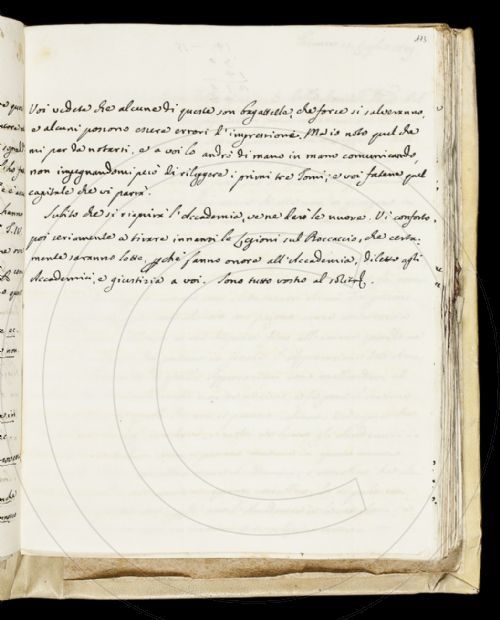 173
Voi vedete che alcune di queste son bagattelle, che forse si salveranno,
e alcuni possono essere errori d'impressione. Ma io noto quel che
mi par da notarsi, e a voi lo andrò di mano in mano comunicando,
non impegnandomi però di rileggere i primi tre Tomi; e voi fatene quel
capitale che vi parrà.
Subito che si riaprirà l'Accademia, ve ne darò le nuove. Vi conforto
poi seriamente a tirare innanzi le Lezioni sul Boccaccio, che certa-
mente saranno lette, perchè fanno onore all'Accademia, diletto agli
Accademici, e giustizia a voi. Sono tutto vostro al solito.